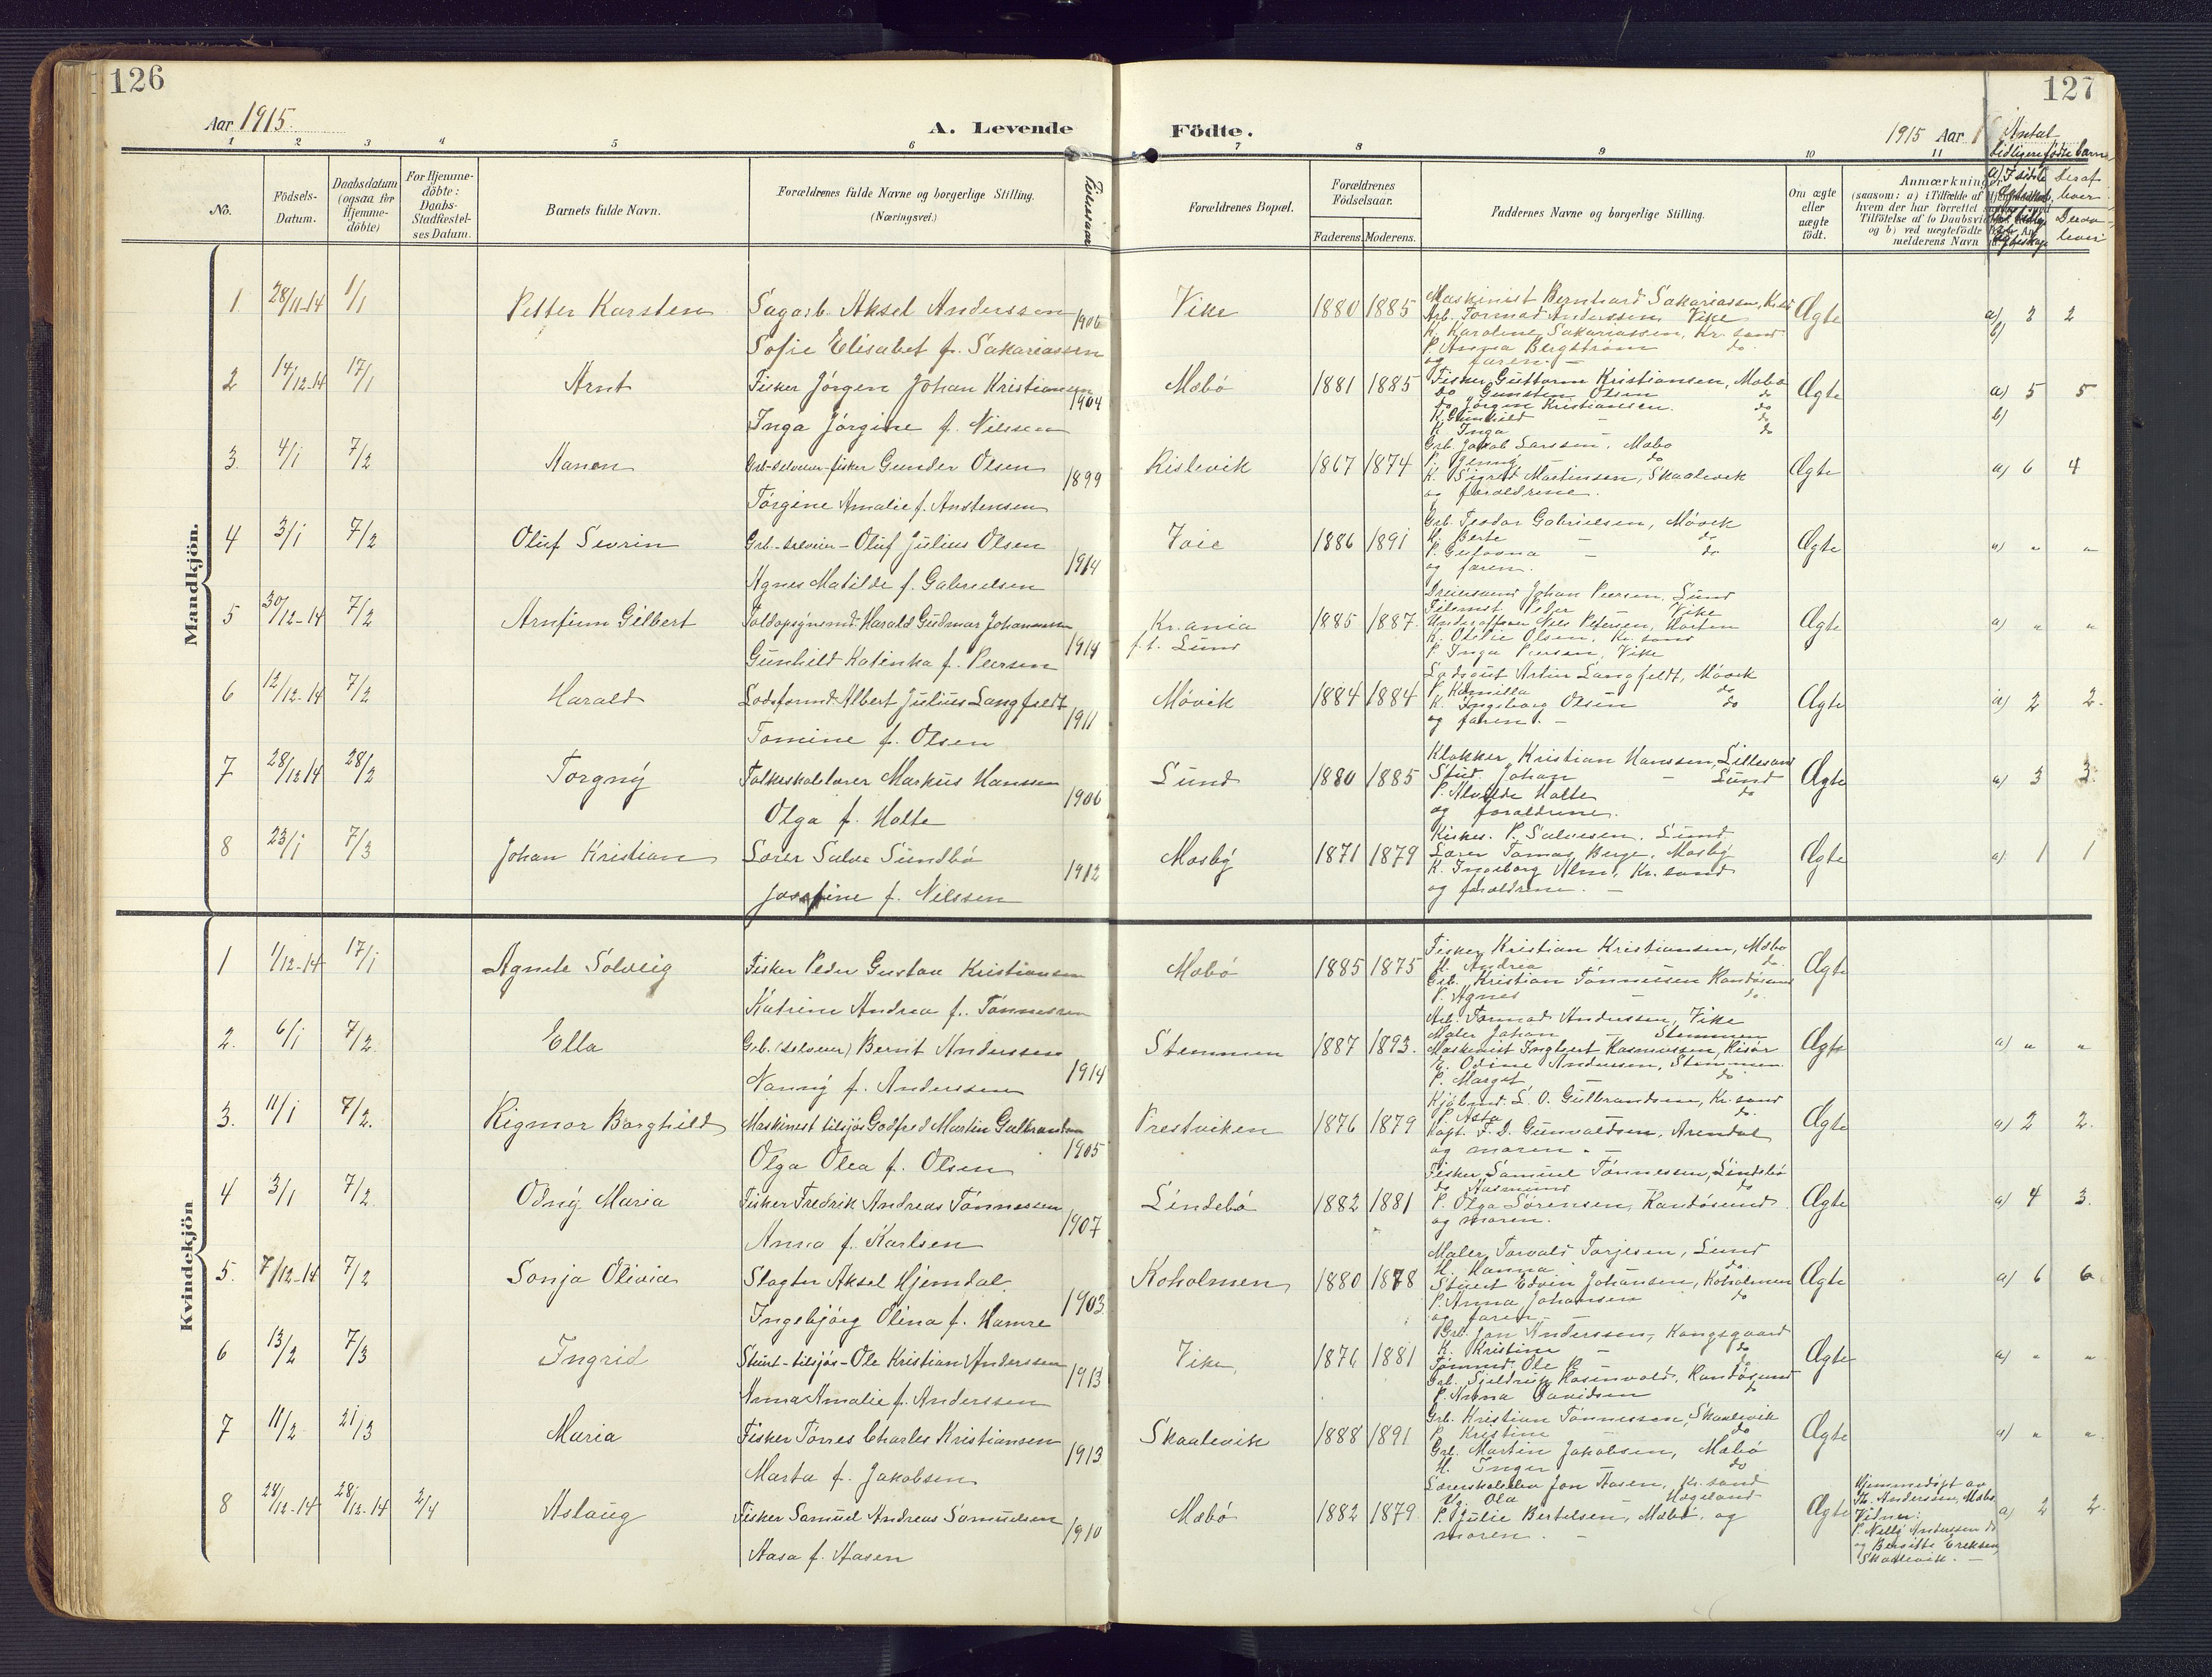 126
127
Aar 1915.
A. Levende
Födte.
1915 Aar
1 2 3 4 5 6 7 8 9 10 11
No.
Födsels-
Datum.
Daabsdatum
(ogsaa for
Hjemme-
döbte)
For Hjemme-
döbte:
Daabs-
Stadfæstel-
ses Datum.
Barnets fulde Navn.
Forældrenes fulde Navne og borgerlige Stilling.
(Næringsvei.)
Vielsesaar
Forældrenes Bopæl.
Forældrenes
Födselsaar.
Faderens. Moderens.
Faddernes Navne og borgerlige Stilling.
Om ægte
eller
uægte
födt.
Anmærkninger
(saasom: a) i Tilfælde af
hvem der har forrettet
Tilföielse af to Daabsvidner
og b) ved uægtefödte Börn An-
melderens Navn
Antal
tidligere födte barn
Mandkjön.
1. 28/11-14 1/1 Petter Karsten Sagarb. Aksel Anderssen 1906 Vike 1880 1885 Maskinist Bernhard Sakariassen, Kr.sand Ægte a) 2 2
Arb. Tormod Anderssen, Vike
b)
Sofie Elisabet f. Sakariassen K. Karoline Sakariassen, Kr. sand
P. Anna Bergström do.
og faren. –
2 14/12-14 17/1 Arnt Fisker Jörgen Johan Kristiansen 1904 Mæbö 1881 1885 Fisker Guttorm Kristiansen, Mæbö Ægte a) 5 5
do Gunsten Olsen do
do Jörgen Kristiansen. do
b)
Inga Jörgine f. Nilssen K. Gunhild – do
K. Inga do
3. 4/1 7/2 Aanon Grb-selveier-fisker Gunder Olsen 1899 Kislevik 1867 1874 Grb. Jakob Larssen, Mæbö Ægte a) 6 4
P. Jenny do
K. Sigrid Martinsen, Skaalevik
Törgine Amalie f. Anstensen og forældrene.
4 3/1 7/2 Oluf Sevrin Grb.-selveier-Oluf Julius Olsen 1914 Voie 1886 1891 Grb. Teodor Gabrielsen, Mövik Ægte a) " "
K. Berte – do
P. – do
Agnes Matilde f. Gabrielsen og faren.
5 30/12-14 7/2 Arnfinn Gilbert Toldopsynsmd. Harald Gudmar Johannessen 1914 Kr.ania 1885 1887. Johan Peersen, Lund Ægte a) " "
f.t. Lund
Peder Vike
Underofficer Nils Petersen, Horten
K. Otilie Olsen, Kr. sand
Gunhild Katinka f. Peersen P. Inga Peersen, Vike
6 12/12-14 7/2 Harald Lodsformd. Albert Julius Langfeldt 1911 Mövik 1884 1884 Lodsgut Artur Langfeldt, Mövik Ægte a) 2 2.
P. Kamilla do
K. Ingeborg Olsen do
Tomine f. Olsen og faren. –
7 28/12 14 28/2 Torgny Folkeskolelærer Markus Hanssen 1906 Lund 1880 1885 Klokker Kristian Hanssen, Lillesand Ægte a) 3 3.
Stud. Johan – Lund
P. Alvilde Holte do
Olga f. Holte og forældrene.
8 23/1 7/3 Johan Kristian Lærer Salve Sundbö 1912 Mosby 1871 1879 Kirkes. P. Salvesen, Lund Ægte a) 1 1
Lærer Tomas Berge, Mosby
K. Ingeborg Alm, Kr. sand
Josefine f. Nilssen og forældrene. –
Kvindekjön
1 1/12-14 17/1 Agnete Solveig Fisker Peder Gustav Kristiansen Mæbö 1885 1875 Fisker Kristian Kristiansen, Mæbö Ægte
K. Andrea do.
Grb. Kristian Tönnessen Randösund
Katrine Andrea f. Tönnessen P. Agnes – do.
2. 6/1 7/2. Ella Grb. (selveier) Bernt Anderssen 1914 Stemmen 1887 1893. Arb. Tormod Anderssen, Vike Ægte a) " "
Maler Johan – Stemmen
Maskinist Ingbert Rasmussen, Risör
E. Odine Anderssen, Stemmen
Nanny f. Anderssen P. Margit – do
3. 11/1 7/2. Rigmor Borghild Maskinist tilsjös Godfred Martin Gulbrandsen 1905 Prestviken 1876 1879 Kjöbmd. L. O. Gulbrandsen, Kr. sand Ægte a) 2 2.
P. Asta do.
Kapt. F. D. Gunvaldsen, Arendal
Olga Olea f. Olsen og moren. –
4 3/1 7/2 Odny Maria Fisker Fredrik Andreas Tönnessen 1907 Lindebö 1882 1881 Fisker Samuel Tönnessen, Lindebö Ægte a) 4 3.
do Rasmus do
P. Olga Sörensen, Randösund
Anna f. Karlsen og moren.
5. 7/12-14 7/2 Sonja Olivia Slagter Aksel Hjemdal. 1903 Koholmen 1880 1878 Maler Torvald Torjesen, Lund Ægte a) 6 6
K. Hanna do.
Stuert Edvin Johansen, Koholmen
P. Anna Johansen do
Ingebjörg Olina f. Hamre og faren. –
6 13/2 7/3 Ingrid Stuert-tilsjös-Ole Kristian Anderssen 1913 Vike, 1876 1881 Grb. Jon Anderssen, Kongsgaard Ægte a) " "
K. Kristine – do
Tömmd. Ole do
Grb. Rosenvold, Randösund
Anna Amalie f. Anderssen P. Anna Davidsen do
7 11/2 21/3 Maria Fisker Törres Charles Kristiansen 1913 Skaalevik 1888 1891 Grb. Kristian Tönnessen, Skaalevik Ægte a) " ".
P. Kristine do
Grb. Martin Jakobsen, Mæbö
Marta f. Jakobsen K. Inger do
8 28/12-14 28/12-14 2/4 Aslaug Fisker Samuel Andreas Samuelsen 1910 Mæbö 1882 1879. Lærerskoleelev Jon Aasen, Kr. sand Ægte Hjemmedöpt av a) 2 2.
Ug. Ola – Hægeland
P. Julie Bertelsen, Mæbö, og
moren. –
Aasa f. Aasen
Th. Anderssen, Mæbö
Vidner:
P. Nelly Anderssen do
og Bergitte Ereksen,
Skaalevik. –